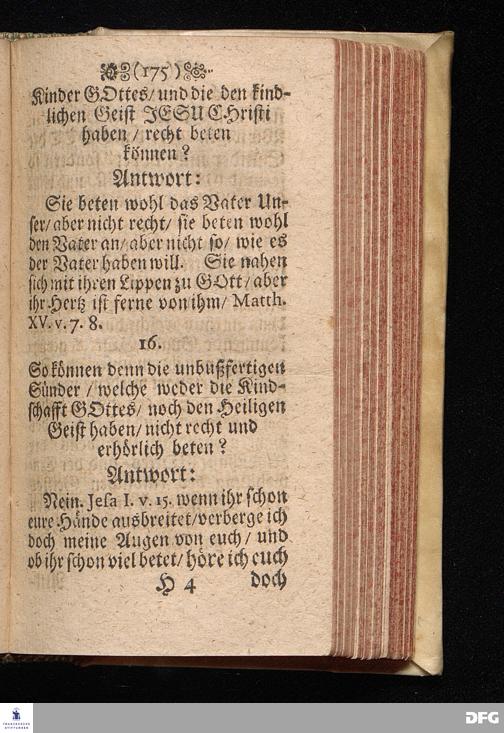 (175)
Kinder GOttes/ und die den kind-
lichen Geist JESU CHristi
haben / recht beten
können?
Antwort:
Sie beten wohl das Vater Un-
ser/ aber nicht recht/ sie beten wohl
den Vater an/ aber nicht so/ wie es
der Vater haben will. Sie nahen
sich mit ihren Lippen zu GOtt/ aber
ihr Hertz ist ferne von ihm/ Matth.
XV. v. 7. 8.
16.
So können denn die unbußfertigen
Sünder / welche weder die Kind-
schafft GOttes/ noch den Heiligen
Geist haben/ nicht recht und
erhörlich beten?
Antwort:
Nein. Jesa I. v. 15. wenn ihr schon
eure Hände ausbreitet/ verberge ich
doch meine Augen von euch/ und
ob ihr schon viel betet/ höre ich euch
H 4 doch
FRANCKESCHE
STIFTUNGEN
DFG